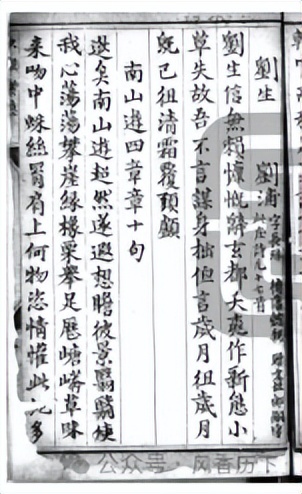 劉生 劉
劉生信無賴慷慨辭玄都大夾作新態小
草失故吾不言謀身拙但言歲月徂歲月
既已徂清霜覆頭顱
南山遊四章章十句
遊矣南山遊超然遂遐想瞻彼景翳翳使
我心蕩蕩攀崖緣橡栗舉足歷草昧
來吻中蛛絲罥肩上何物恣情懽此多
公众号·风香历下